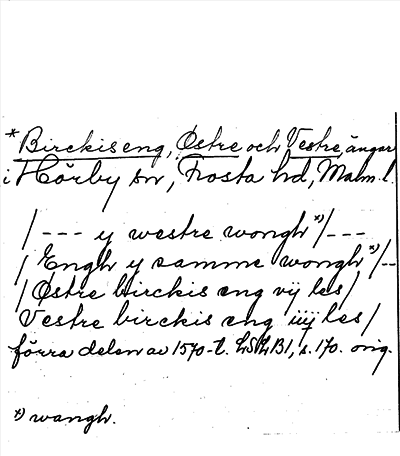 *Birckis eng, Østre och Vestre, ängar
i Hörby sn, Frosta hd, Malm. l.
/ - - - y westre wongh *)/ - - -
/ Engh y samme wongh *)/ - -
/ Østre birckis eng vij les /
Vestre birckis eng iiij les /
förra delen av 1570-t. LSLB1, s. 170. orig.
*) wangh.